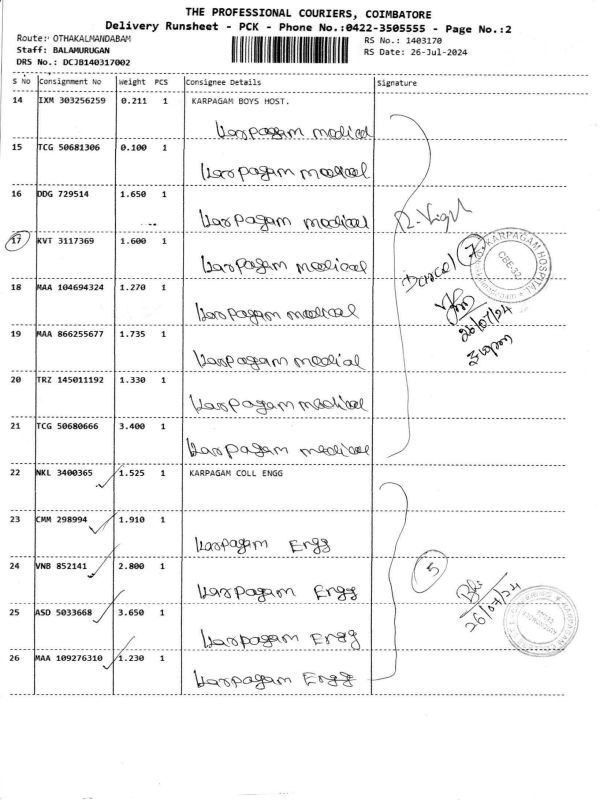 THE PROFESSIONAL COURIERS, COIMBATORE
Delivery Runsheet - PCK - Phone No.:0422-3505555 - Page No.:2
Route: OTHAKALMANDABAM RS No.: 1403170
Staff: BALAMURUGAN RS Date: 26-Jul-2024
DRS No.: DCJB140317002
S No Consignment No Weight PCS Consignee Details Signature
14 IXM 303256259 0.211 1 KARPAGAM BOYS HOST.
Karpagam medical
15 TCG 50681306 0.100 1
Karpagam medical
16 DDG 729514 1.650 1
Karpagam medical
17 KVT 3117369 1.600 1
Karpagam medical
18 MAA 104694324 1.270 1
Karpagam medical
19 MAA 866255677 1.735 1
Karpagam medial
20 TRZ 145011192 1.330 1
Karpagam medical
21 TCG 50680666 3.400 1
Karpagam medical
7
KARPAGAM HOSPITAL
CBE-32
26/07/24
22 NKL 3400365 1.525 1 KARPAGAM COLL ENGG
23 CMM 298994 1.910 1
Karpagam Engg
24 VNB 852141 2.800 1
Karpagam Engg
25 ASD 5033668 3.650 1
Karpagam Engg
26 MAA 109276310 1.230 1
Karpagam Engg
5
26/07/24